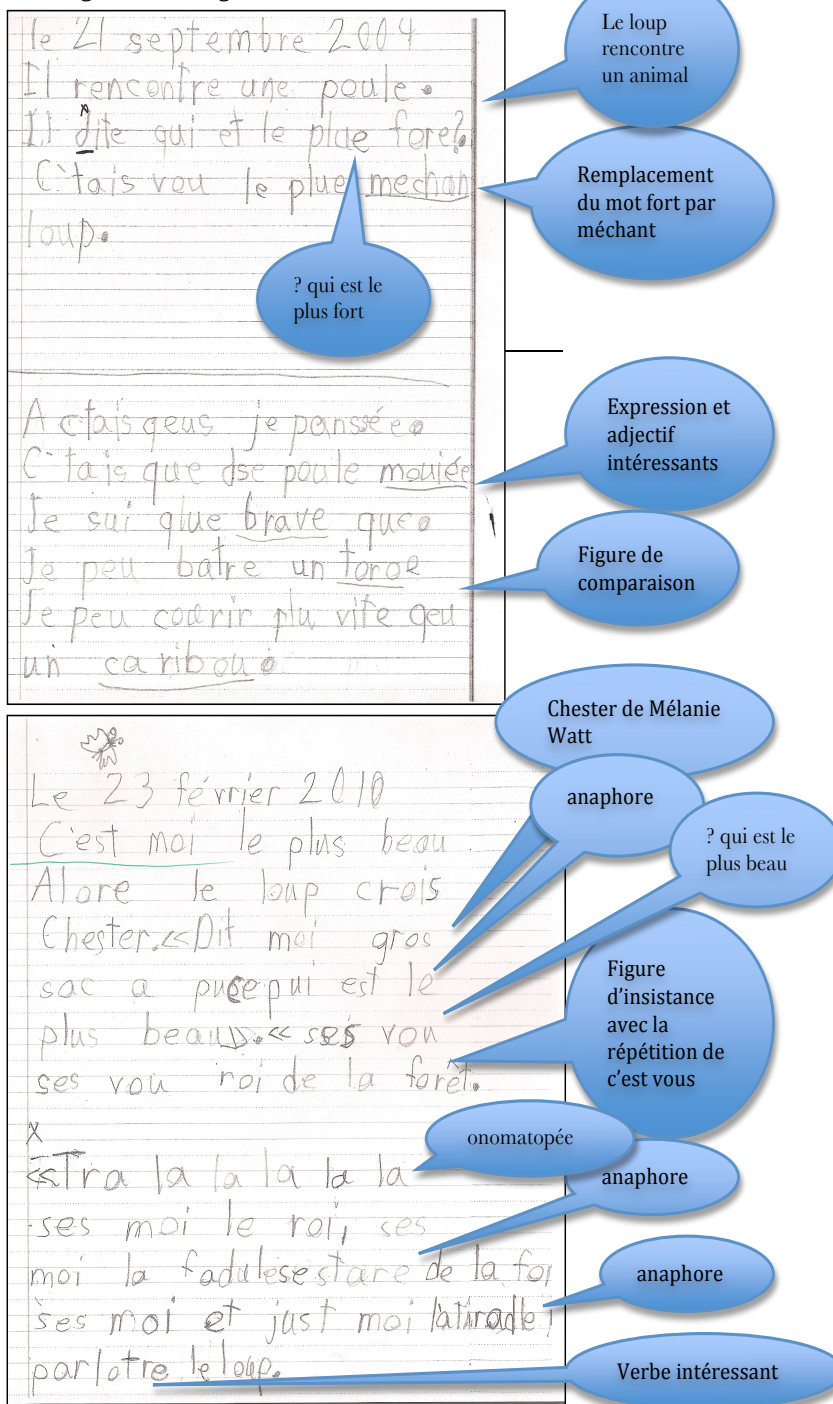 le 21 septembre 2009
Il rencontre une poule.
x
Il dite qui et le plue fore?
C'tais vou le plue mechan
loup.
Le loup
rencontre
un animal
Remplacement
du mot fort par
méchant
? qui est le
plus fort
A ctais qeus je panssée.
C'tais que dse poule mouiée
Je sui qlue brave que.
Je peu batre un toroe
Je peu courir plu vite qeu
un caribou.
Expression et
adjectif
intéressants
Figure de
comparaison
Le 23 février 2010
C'est moi le plus beau
Alore le loup crois
Chester.«Dit moi gros
sac a puce pui est le
plus beau».« ses vou
ses vou roi de la forêt.
x
«Tra la la la la la
ses moi le roi, ses
moi la fadulese stare de la foi
ses moi et just moi
parlotre le loup.
Chester de Mélanie
Watt
anaphore
? qui est le
plus beau
Figure
d'insistance
avec la
répétition de
c'est vous
onomatopée
anaphore
anaphore
Verbe intéressant